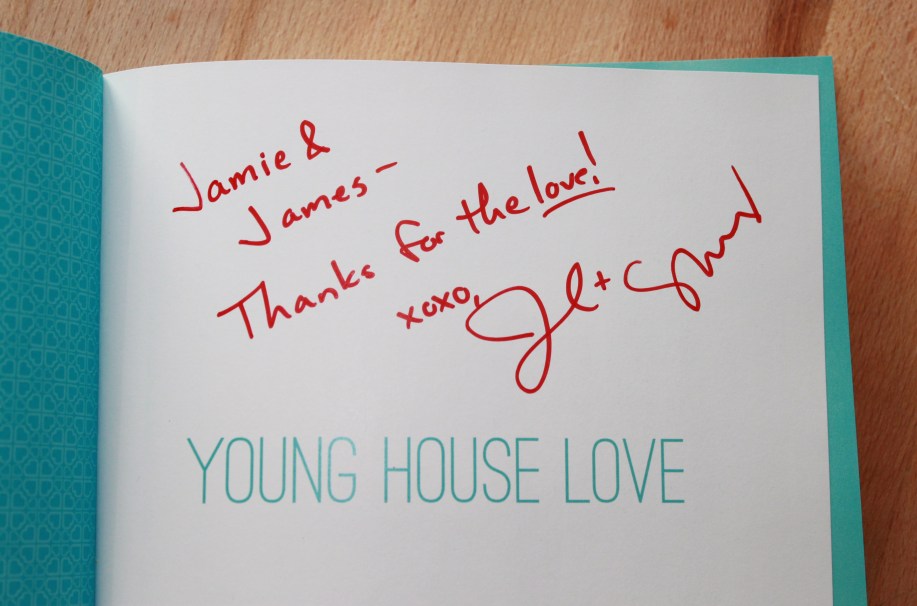 Jamie &
James-
Thanks for the love!
xoxo,
YOUNG HOUSE LOVE